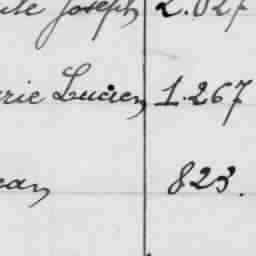 Joseph 2.027
rie Lucien 1.267
ean 823.